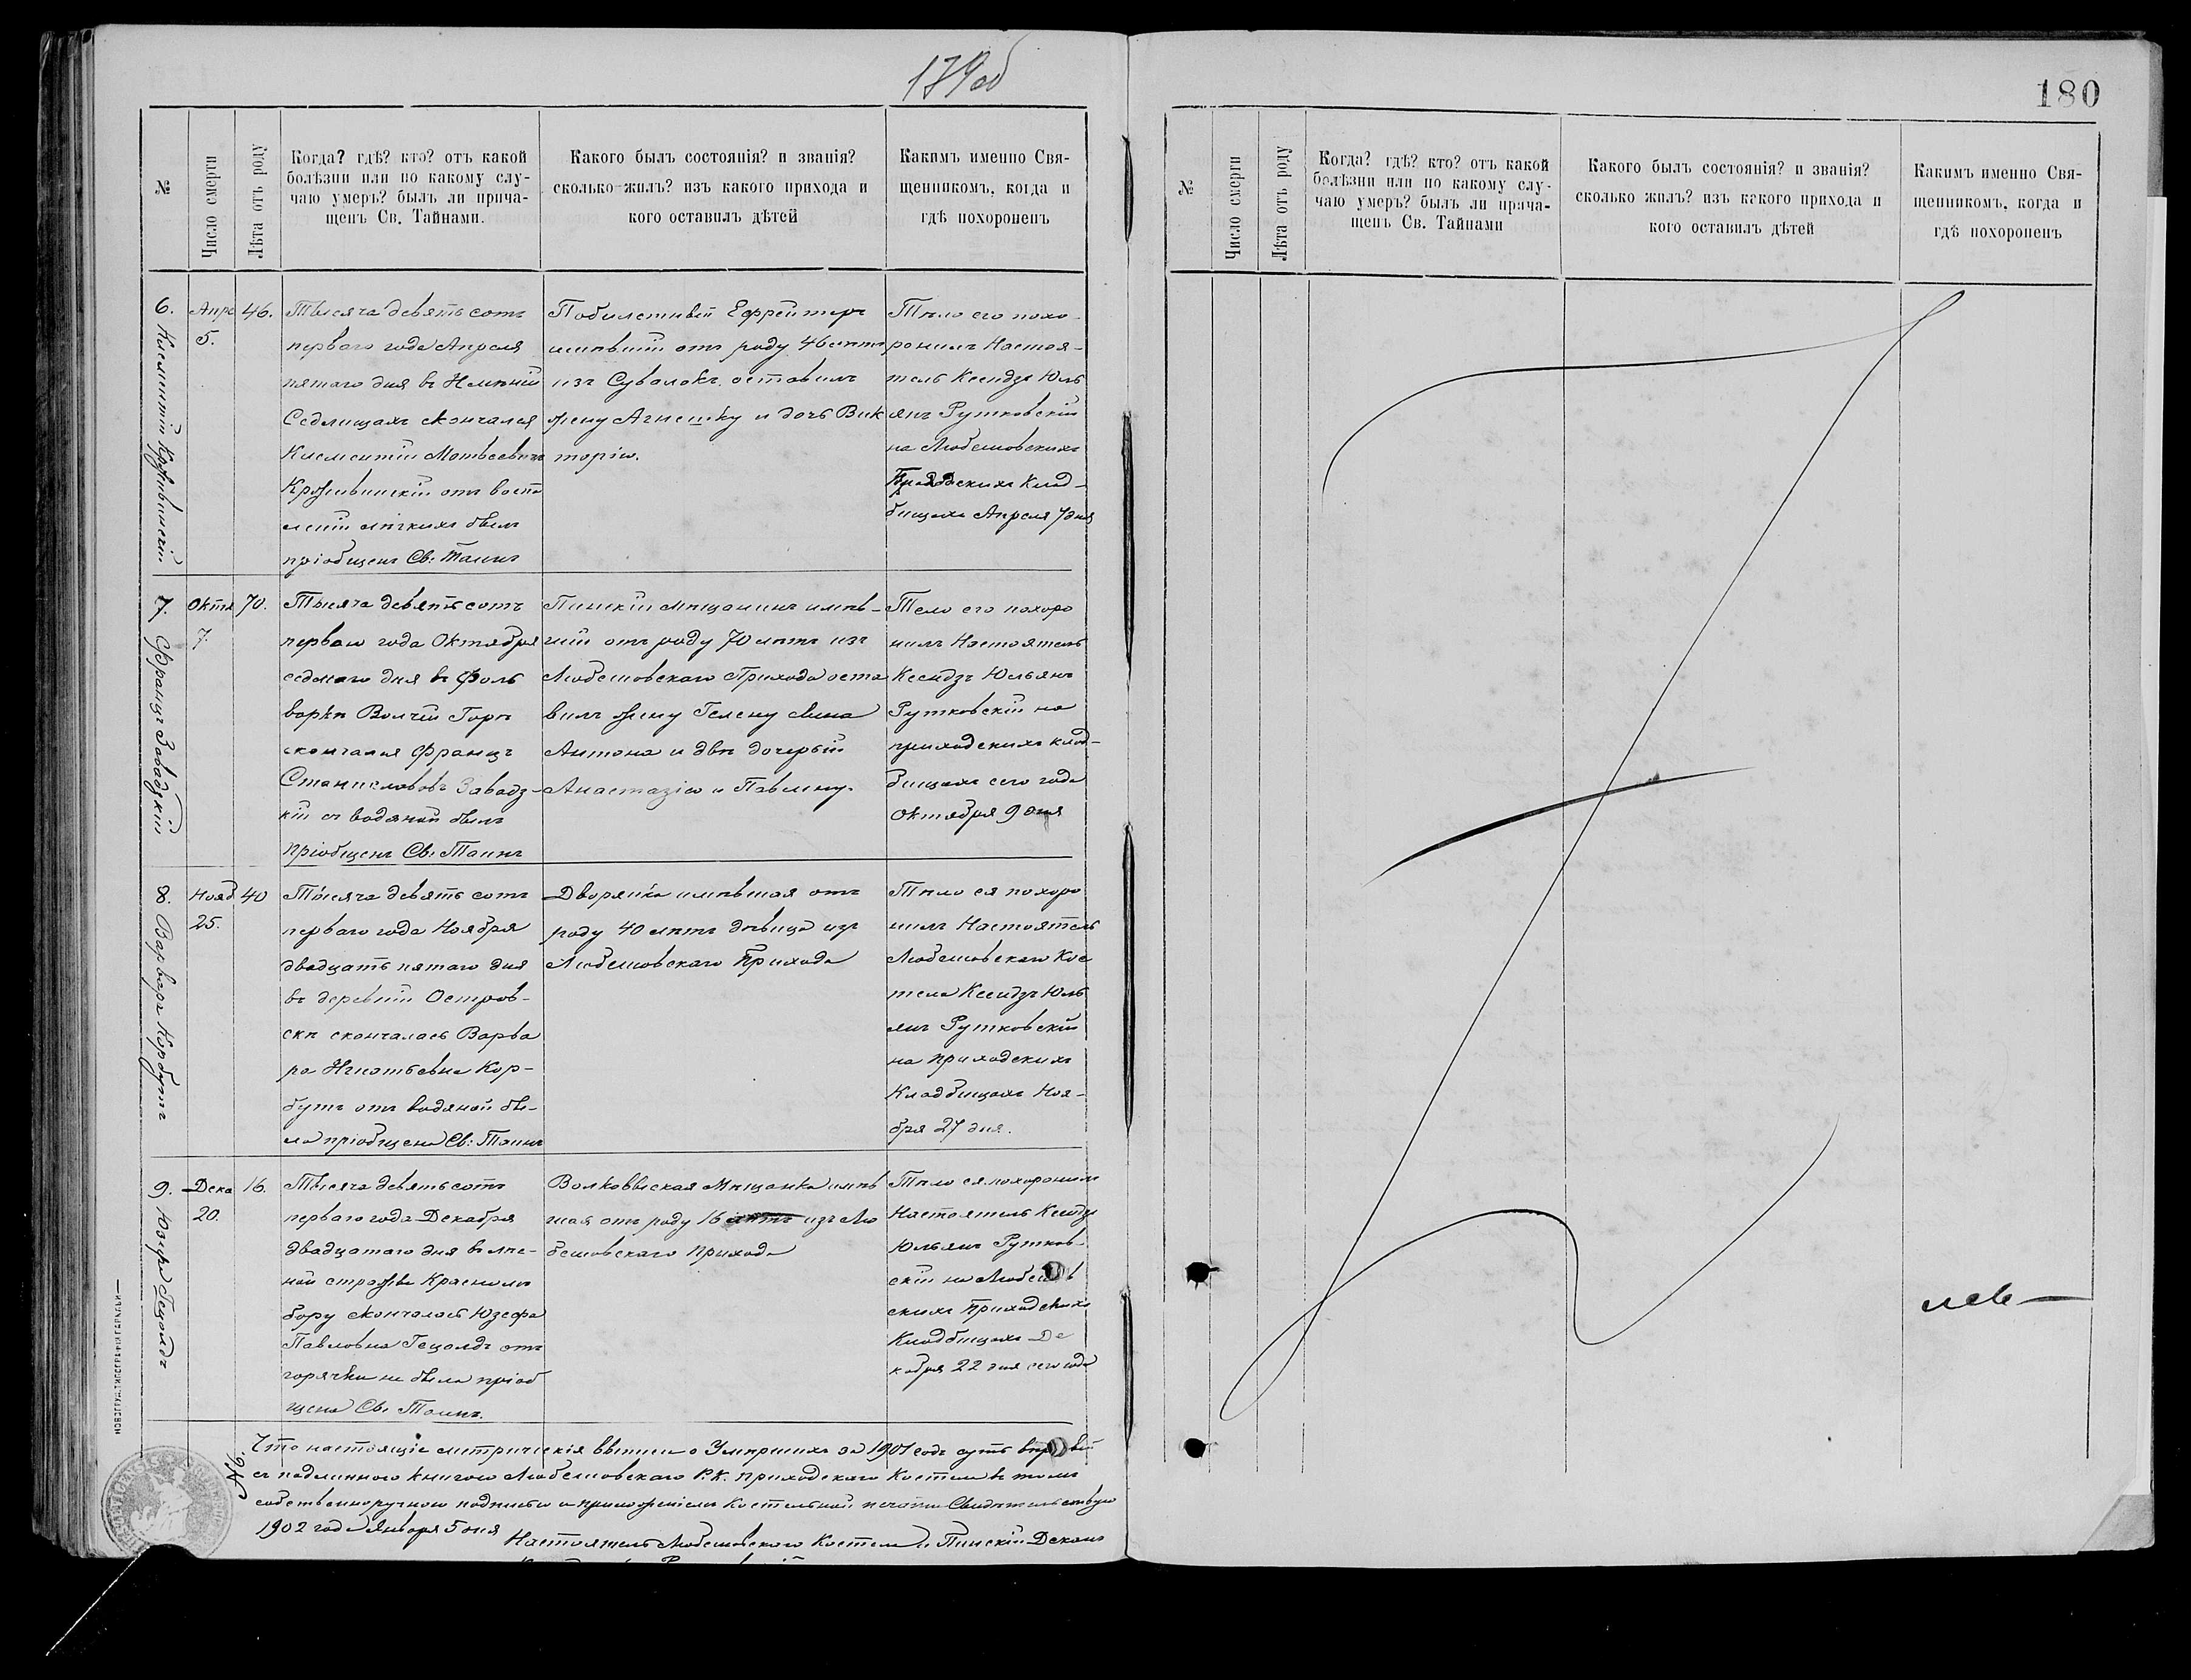 179 об
№
Число смерти
Лѣта отъ роду
Когда? гдѣ? кто? отъ какой
болѣзни или по какому слу-
чаю умеръ? былъ ли прича-
щенъ Св. Тайнами.
Какого былъ состоянія? и званія?
сколько жилъ? изъ какого прихода и
кого оставилъ дѣтей
Какимъ именно Свя-
щенникомъ, когда и
гдѣ похороненъ
6.
Апре
5.
46.
Тысяча девятьсотъ
перваго года Апреля
пятаго дня въ
Седлищахъ скончался
Клементій Матвеевичъ
отъ воспа
леній лёгкихъ былъ
пріобщенъ Св: Таинъ
Побилетный Ефрейторъ
имѣвшій отъ роду 46 лѣтъ
изъ Сувалокъ оставилъ
жену Агнешку и дочь Вик
торію.
Тѣло его похо-
ронилъ Настоя-
тель Ксендзъ Юль
янъ Рутковскій
на Любешовскихъ
Приходскихъ Клад-
бищахъ Апреля 7 дня
7. Францъ Завадзкій
Октя
7.
70.
Тысяча девятьсотъ
перваго года Октября
седмаго дня въ Фоль
варкѣ Волчій Горѣ
скончался Францъ
Станиславовъ Завадз-
кій съ водяной былъ
пріобщенъ Св: Таинъ
Пинскій мѣщанинъ имѣв-
шій отъ роду 70 лѣтъ изъ
Любешовскаго Прихода оста
вилъ жену Гелену сына
Антона и двѣ дочерьй
Анастазію и Павлину.
Тело его похоро
нилъ Настоятель
Ксендзъ Юльянъ
Рутковскій на
приходскихъ клад-
бищахъ сего года
Октября 9 дня
8. Варвара Корбутъ
Нояб
25.
40
Тысяча девятьсотъ
перваго года Ноября
двадцать пятаго дня
въ деревнѣй Остров-
скѣ скончалась Варва
ра Игнатьевна Кор-
бутъ отъ водяной бы-
ла пріобщена Св: Таинъ
Дворянка имѣвшая отъ
роду 40 лѣтъ дѣвица изъ
Любешовскаго Прихода
Тѣло ея похоро
нилъ Настоятель
Любешовскаго Кос
тела Ксендзъ Юль
янъ Рутковскій
на приходскихъ
Кладбищахъ Ноя-
бря 27 дня.
9. Юзефа Гецолдъ
Дека
20.
16.
Тысяча девятьсотъ
перваго года Декабря
двадцатаго дня въ лѣс-
ной стражѣ Красномъ
бору скончалась Юзефа
Павловна Гецолдъ отъ
горячки не была пріоб
щена Св. Таинъ.
Волковыская Мѣщанка имѣв
шая отъ роду 16 лѣтъ изъ Лю
бешовскаго прихода
Тѣло ея похоронилъ
Настоятель Ксендзъ
Юльянъ Рутков-
скій на Любешов
скихъ Приходскихъ
Кладбищахъ Де
кабря 22 дня сего года
Что настоящіе метрическія выписи о Умершихъ за 1901 годъ суть
съ подлинною книгою Любешовскаго Р.К. приходскаго Костела въ томъ
собственноручною подписью и приложеніемъ Костельной печати Свидѣтельствую
1902 года Января 5 дня
Настоятель Любешовскаго Костела и Пинскій Деканъ
180
№
Число смерти
Лѣта отъ роду
Когда? гдѣ? кто? отъ какой
болѣзни или по какому слу-
чаю умеръ? былъ ли прича-
щенъ Св. Тайнами
Какого былъ состоянія? и званія?
сколько жилъ? изъ какого прихода и
кого оставилъ дѣтей
Какимъ именно Свя-
щенникомъ, когда и
гдѣ похороненъ